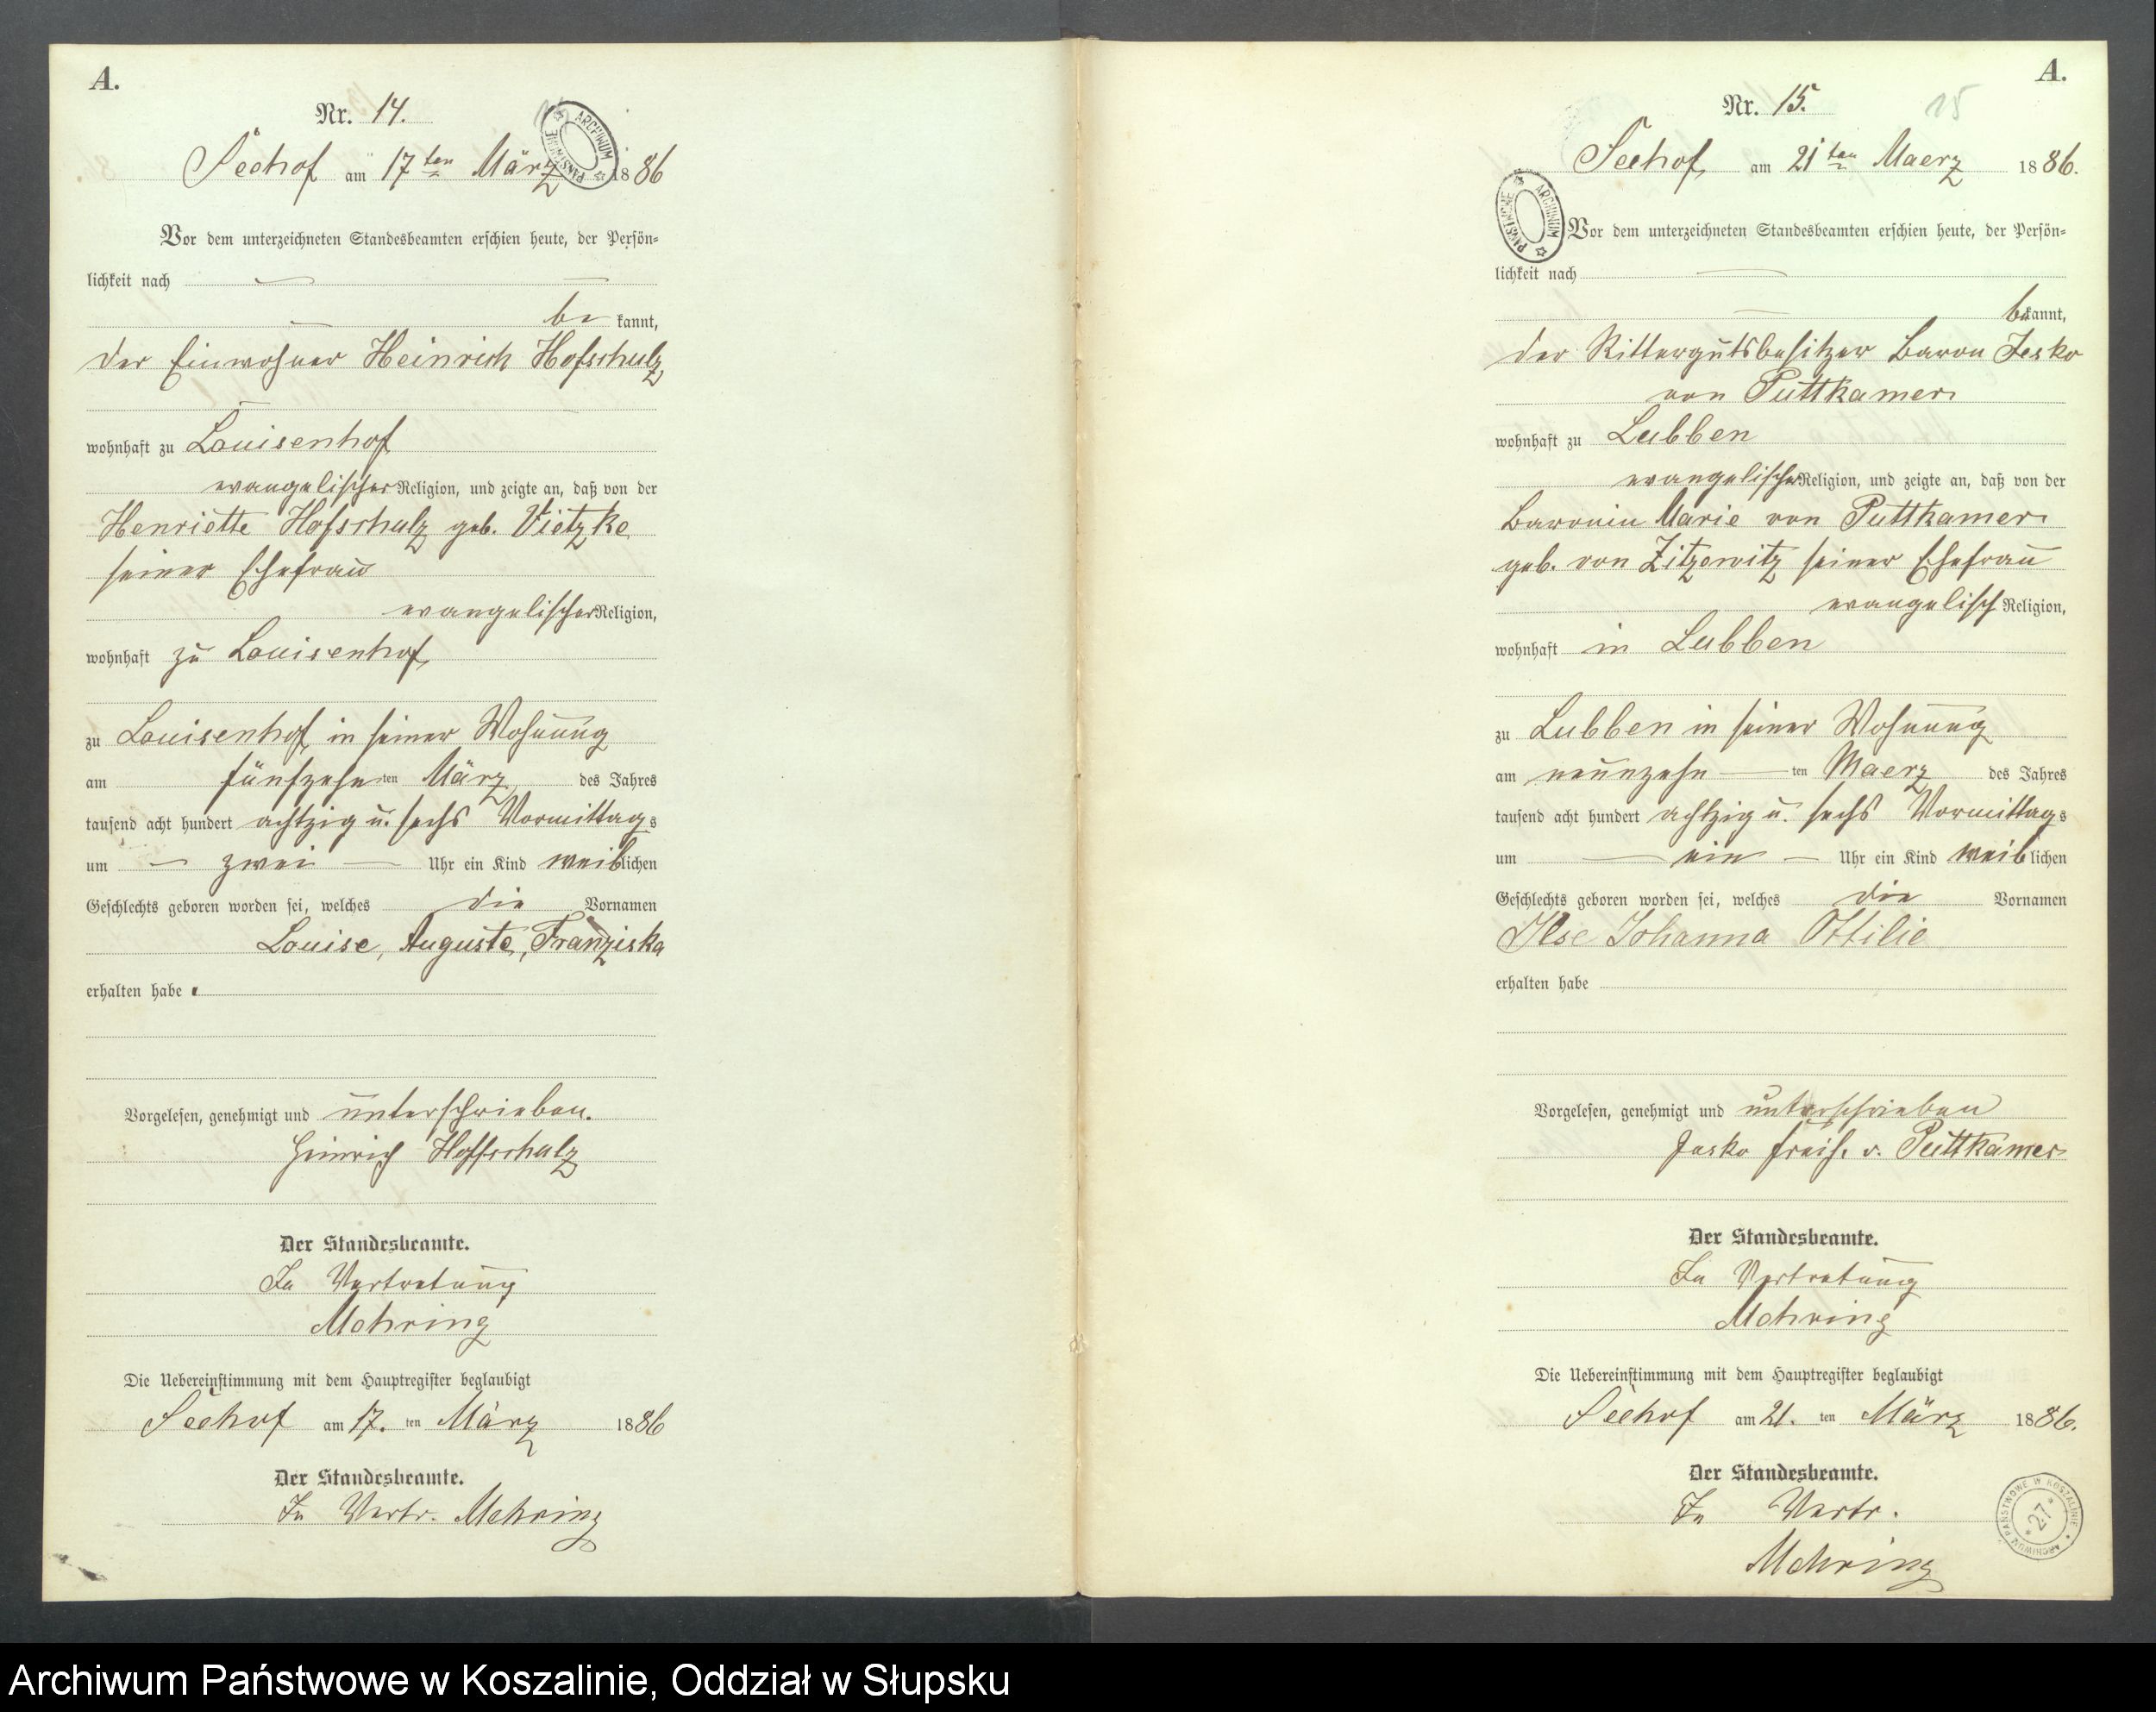 A.
Nr. 14.
Seehof am 17ten März 1886
Vor dem unterzeichneten Standesbeamten erschien heute, der Persön-
lichkeit nach
bekannt,
der Einwohner Heinrich Hofschulz
wohnhaft zu Louisenhof
evangelischer Religion, und zeigte an, daß von der
Henriette Hofschulz geb. Vietzke
seiner Ehefrau
evangelischer Religion,
wohnhaft zu Louisenhof
zu Louisenhof in seiner Wohnung
am fünfzehnten März des Jahres
tausend acht hundert achtzig u. sechs Vormittags
um zwei Uhr ein Kind weiblichen
Geschlechts geboren worden sei, welches die Vornamen
Louise, Auguste, Franziska
erhalten habe.
Vorgelesen, genehmigt und unterschrieben.
Heinrich Hoffschulz
Der Standesbeamte.
In Vertretung
Mehring
Die Uebereinstimmung mit dem Hauptregister beglaubigt
Seehof am 17. ten März 1886
Der Standesbeamte.
In Vertr. Mehring
ARCHIWUM PAŃSTWOWE
A.
Nr. 15.
15
Seehof, am 21ten Maerz 1886.
ARCHIWUM PAŃSTWOWE
Vor dem unterzeichneten Standesbeamten erschien heute, der Persön-
lichkeit nach
bekannt,
der Rittergutsbesitzer Baron Jesko
von Puttkamer
wohnhaft zu Lubben
evangelischer Religion, und zeigte an, daß von der
Baronin Marie von Puttkamer
geb. von Zitzewitz seiner Ehefrau
evangelisch Religion,
wohnhaft in Lubben
zu Lubben in seiner Wohnung
am neunzehn ten Maerz des Jahres
tausend acht hundert achtzig u. sechs Vormittags
um ein Uhr ein Kind weiblichen
Geschlechts geboren worden sei, welches die Vornamen
Ilse Johanna Ottilie
erhalten habe
Vorgelesen, genehmigt und unterschrieben
Jesko Freih. v. Puttkamer
Der Standesbeamte.
In Vertretung
Mehring
Die Uebereinstimmung mit dem Hauptregister beglaubigt
Seehof am 21. ten März 1886.
Der Standesbeamte.
In Vertr.
Mehring
ARCHIWUM PAŃSTWOWE W KOSZALINIE
*27*
Archiwum Państwowe w Koszalinie, Oddział w Słupsku